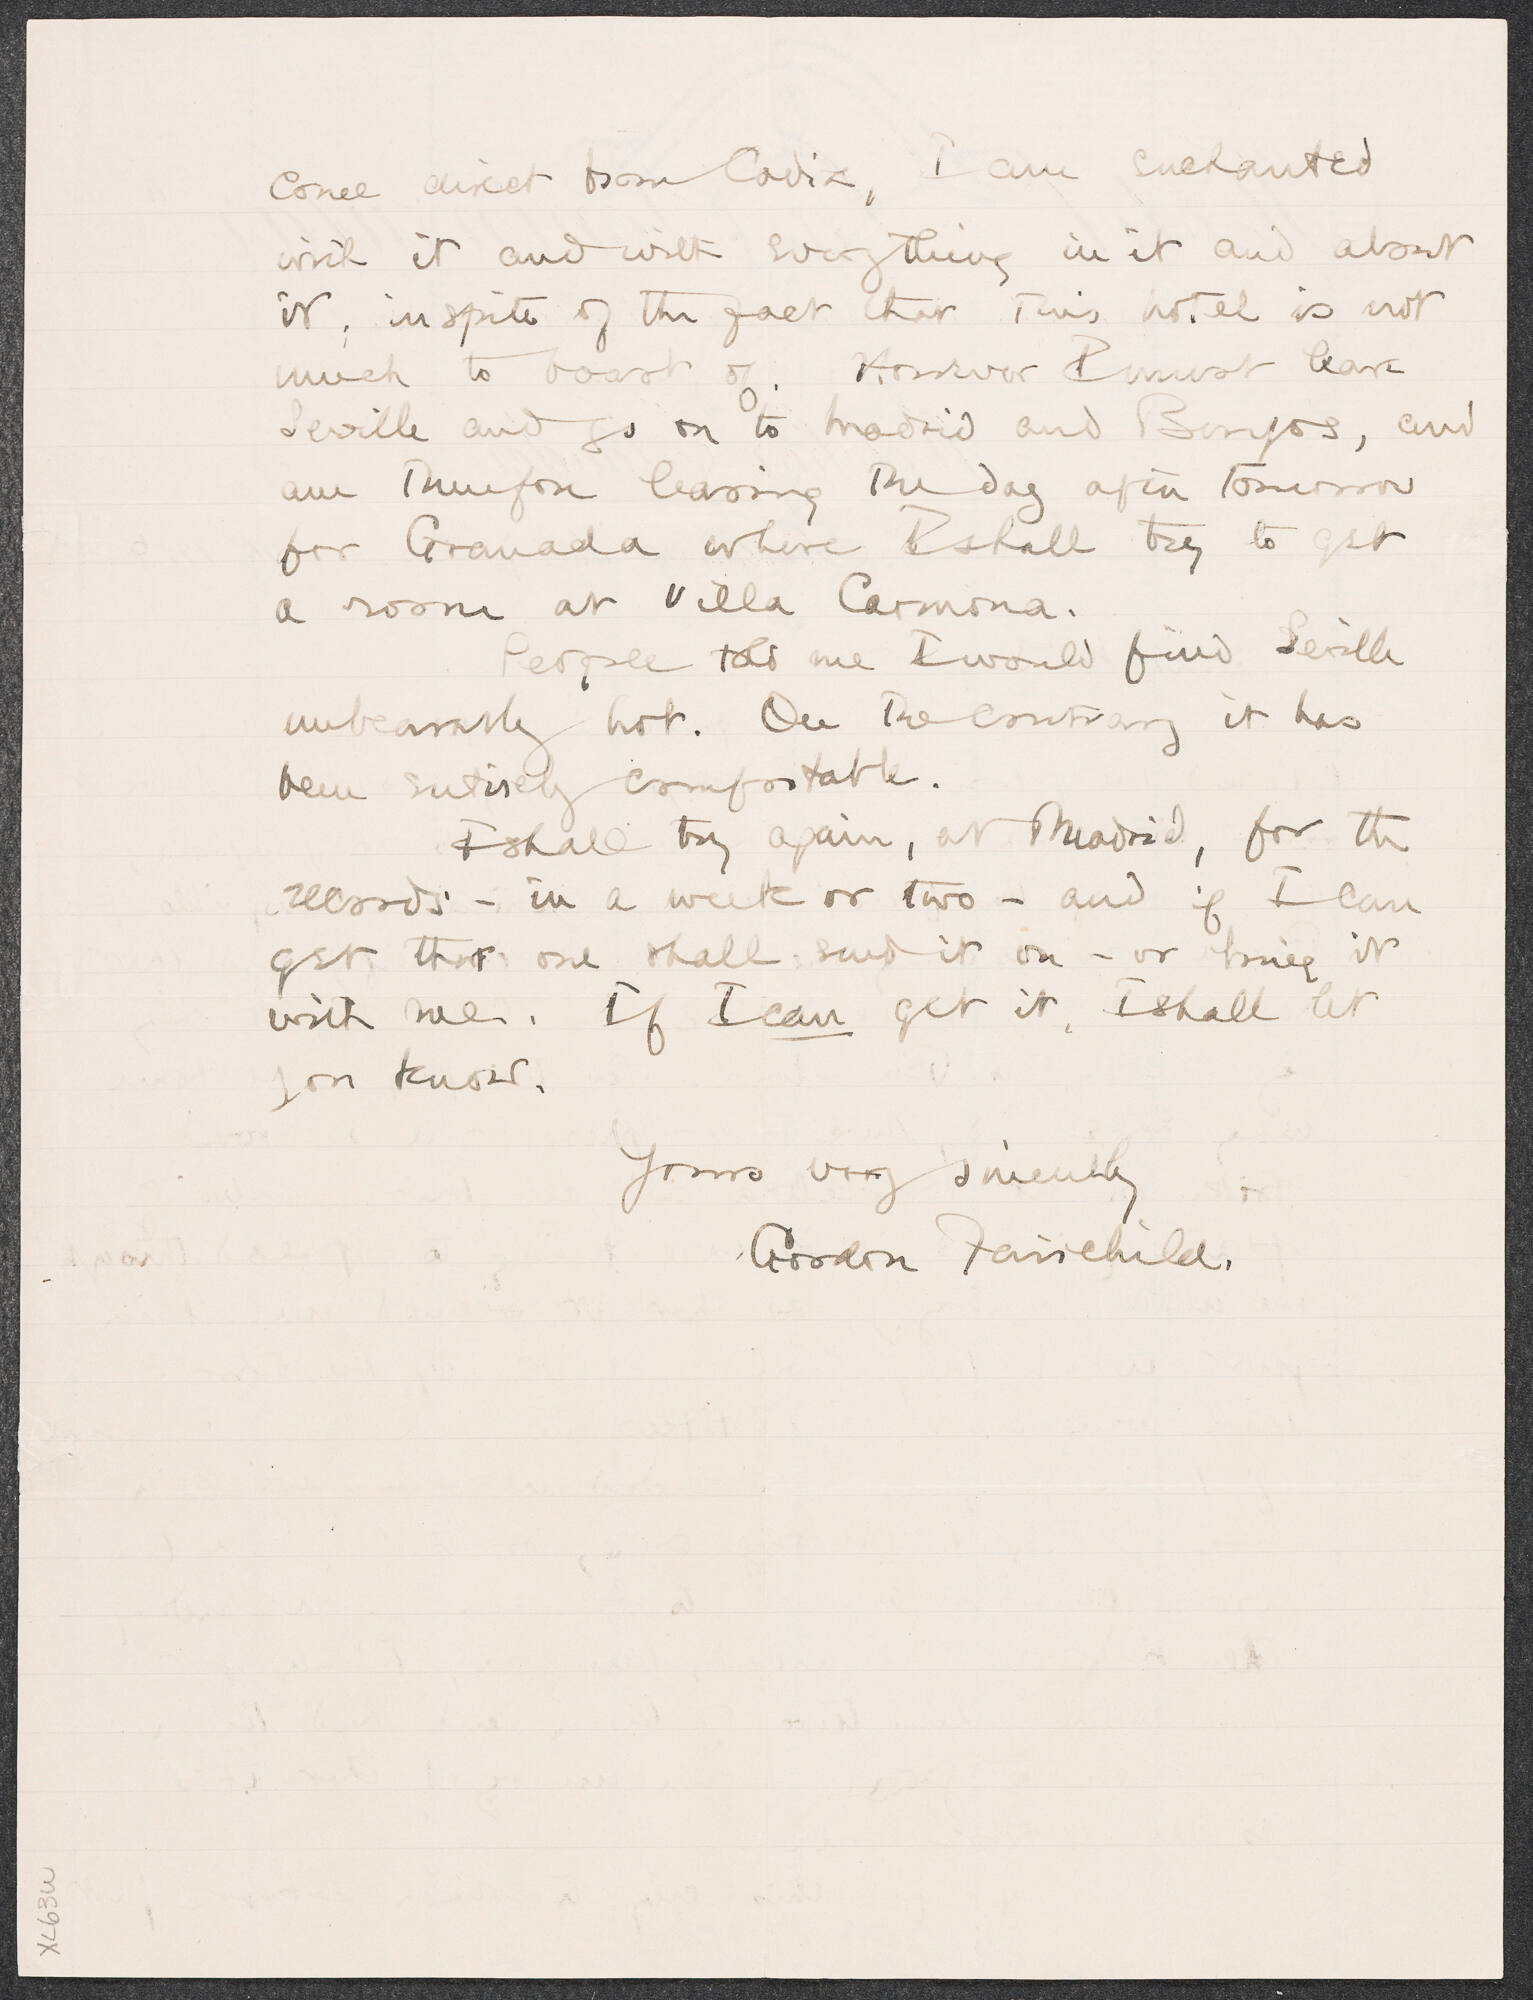 come direct from Cadiz, I am enchanted
with it and with everything in it and about
it, inspite of the fact that this hotel is not
much to boast of. However I must leave
Seville and go on to Madrid and Burgos, and
am therefore leaving the day after tomorrow
for Granada where I shall try to get
a room at Villa Carmona.
People told me I would find Seville
unbearably hot. On the contrary it has
been entirely comfortable.
I shall try again, at Madrid, for the
records - in a week or two - and if I can
get that one shall send it on - or bring it
with me. If I can get it, I shall let
you know.
Yours very sincerely
Gordon Fairchild.
XL63W